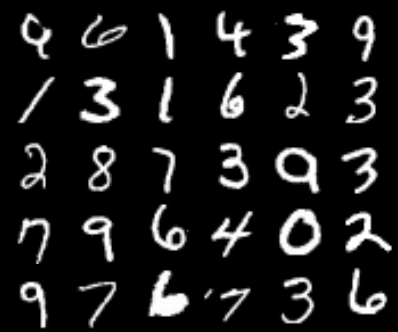 9 6 1 4 3 9
1 3 1 6 2 3
2 8 7 3 9 3
7 9 6 4 0 2
9 7 6 7 3 6